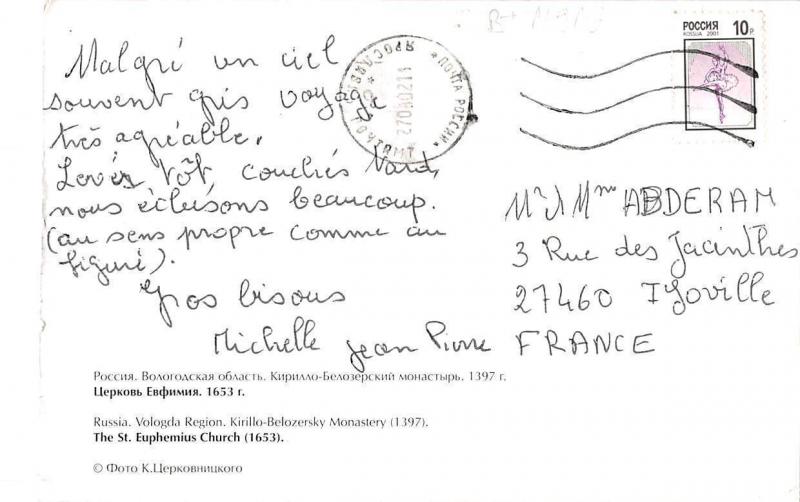 Malgré un ciel
souvent gris voyage
très agréable.
Levés tôt couchés tard,
nous éclusons beaucoup.
(au sens propre comme au
figuré).
Gros bisous
Michelle Jean Pierre
РОССИЯ 10р
ROSSIA 2001
ПОЧТА РОССИИ
270802
Mr Mme ABDERAM
3 Rue des Jacinthes
27460 Igoville
FRANCE
Россия. Вологодская область. Кирилло-Белозерский монастырь. 1397 г.
Церковь Евфимия. 1653 г.
Russia. Vologda Region. Kirillo-Belozersky Monastery (1397).
The St. Euphemius Church (1653).
© Фото К.Церковницкого